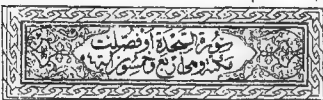 سورة السجدة او فصلت
مكية وهي اربع وخمسون اية